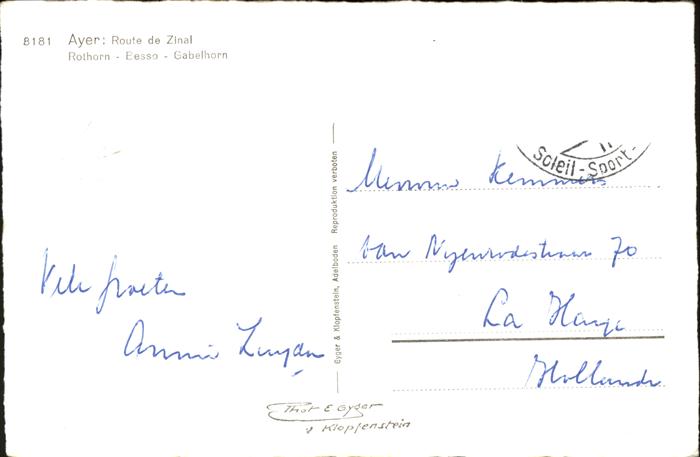 8181 Ayer: Route de Zinal
Rothorn - Besso - Gabelhorn
Soleil - Sport -
van Nyenrodestraat 70
La Haye
Hollande
Vele groeten
Annie
Gyger & Klopfenstein, Adelboden Reproduktion verboten
Phot E Gyger
Klopfenstein